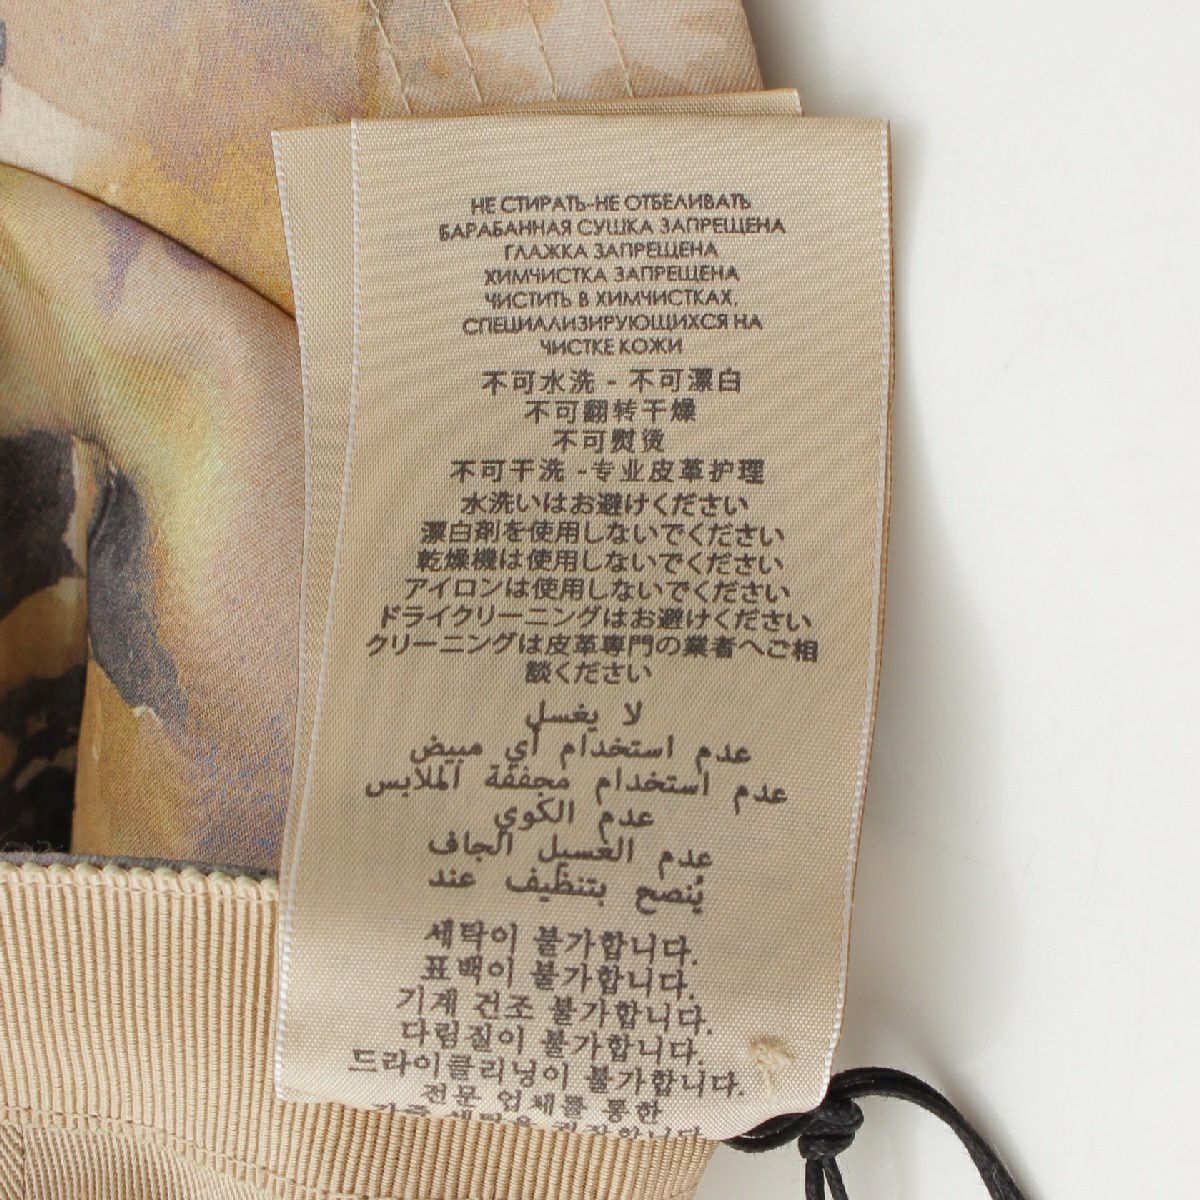 НЕ СТИРАТЬ-НЕ ОТБЕЛИВАТЬ
БАРАБАННАЯ СУШКА ЗАПРЕЩЕНА
ГЛАЖКА ЗАПРЕЩЕНА
ХИМЧИСТКА ЗАПРЕЩЕНА
ЧИСТИТЬ В ХИМЧИСТКАХ,
СПЕЦИАЛИЗИРУЮЩИХСЯ НА
ЧИСТКЕ КОЖИ
不可水洗 - 不可漂白
不可翻转干燥
不可熨烫
不可干洗 -专业皮革护理
水洗いはお避けください
漂白剤を使用しないでください
乾燥機は使用しないでください
アイロンは使用しないでください
ドライクリーニングはお避けください
クリーニングは皮革専門の業者へご相
談ください
لا يغسل
عدم استخدام أي مبيض
عدم استخدام مجففة الملابس
عدم الكوي
عدم الغسيل الجاف
يُنصح بتنظيف عند
세탁이 불가합니다.
표백이 불가합니다.
기계 건조 불가합니다.
다림질이 불가합니다.
드라이클리닝이 불가합니다.
전문 업체를 통한
가죽 세탁을 권장합니다.